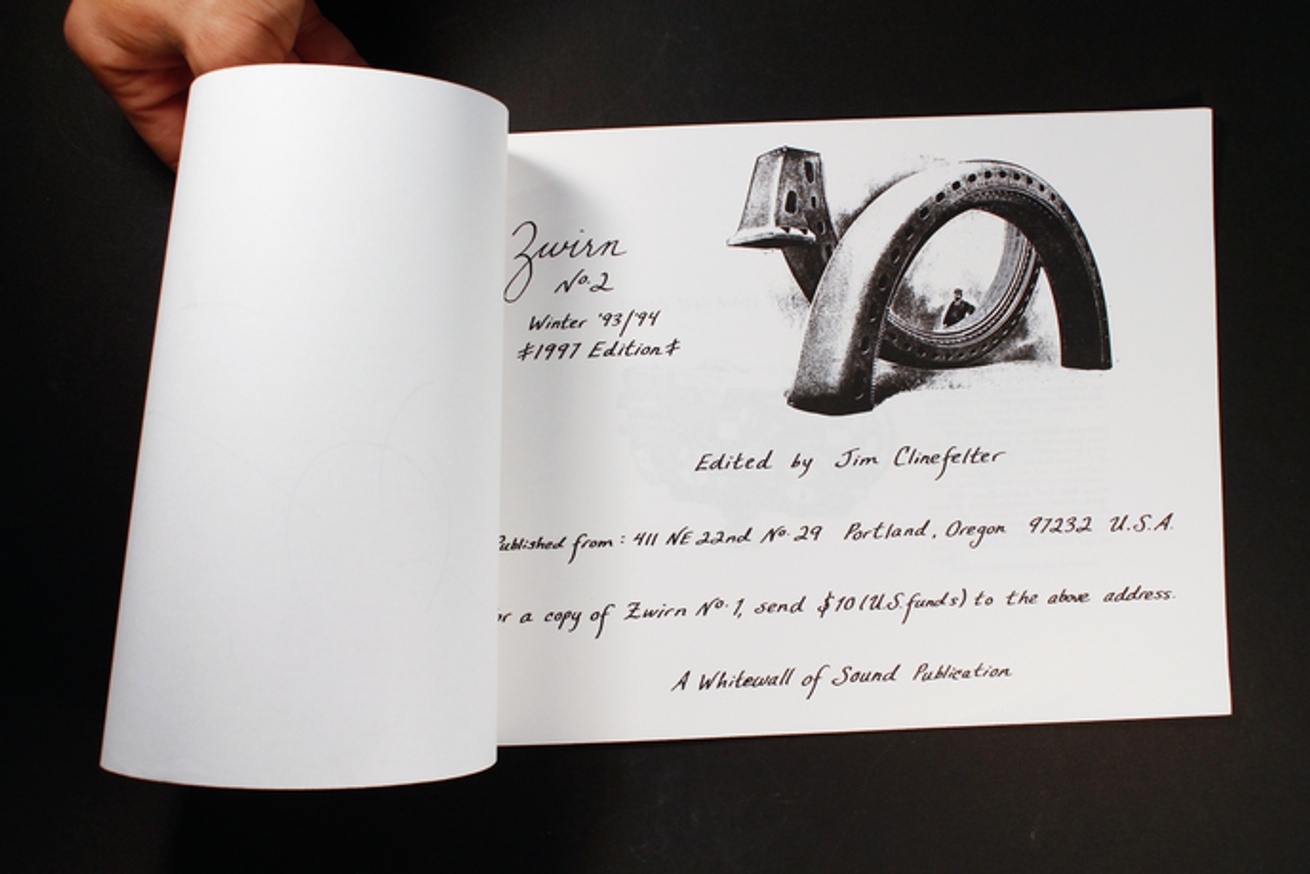 Zwirn
No. 2
Winter '93/'94
‡1997 Edition‡
Edited by Jim Clinefelter
Published from: 411 NE 22nd No. 29 Portland, Oregon 97232 U.S.A.
or a copy of Zwirn No. 1, send $10 (U.S. funds) to the above address.
A Whitewall of Sound Publication